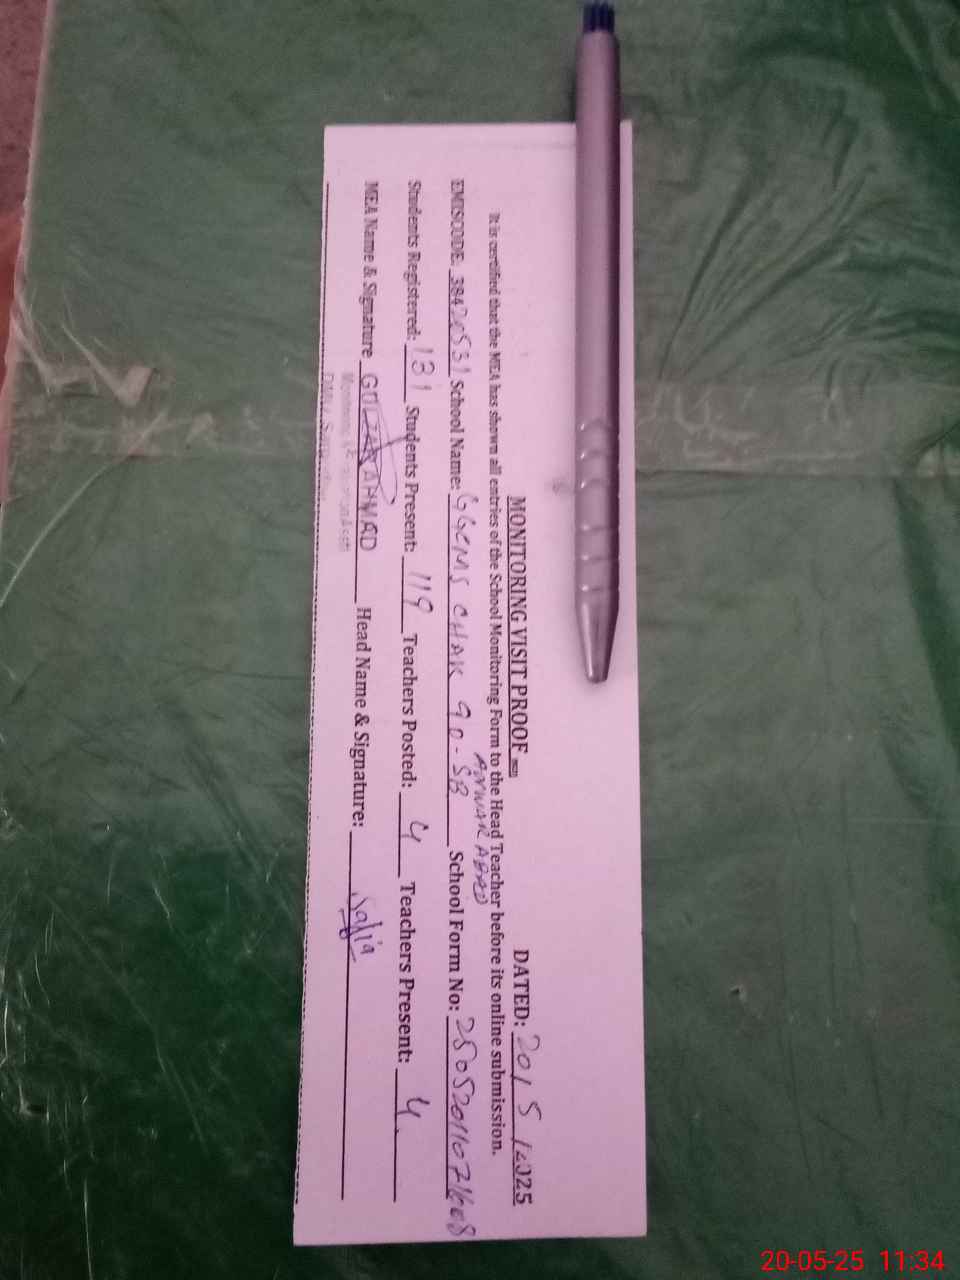 MONITORING VISIT PROOF DATED: 20/5/2025
It is certified that the MEA has shown all entries of the School Monitoring Form to the Head Teacher before its online submission.
ANWAR ABAD
EMISCODE: 38420531 School Name: GGCMS CHAK 90-SB School Form No:
Students Registered: 131 Students Present: 119 Teachers Posted: 4 Teachers Present: 4.
MEA Name & Signature GULZAR AHMAD Head Name & Signature: Safia
20-05-25 11:34